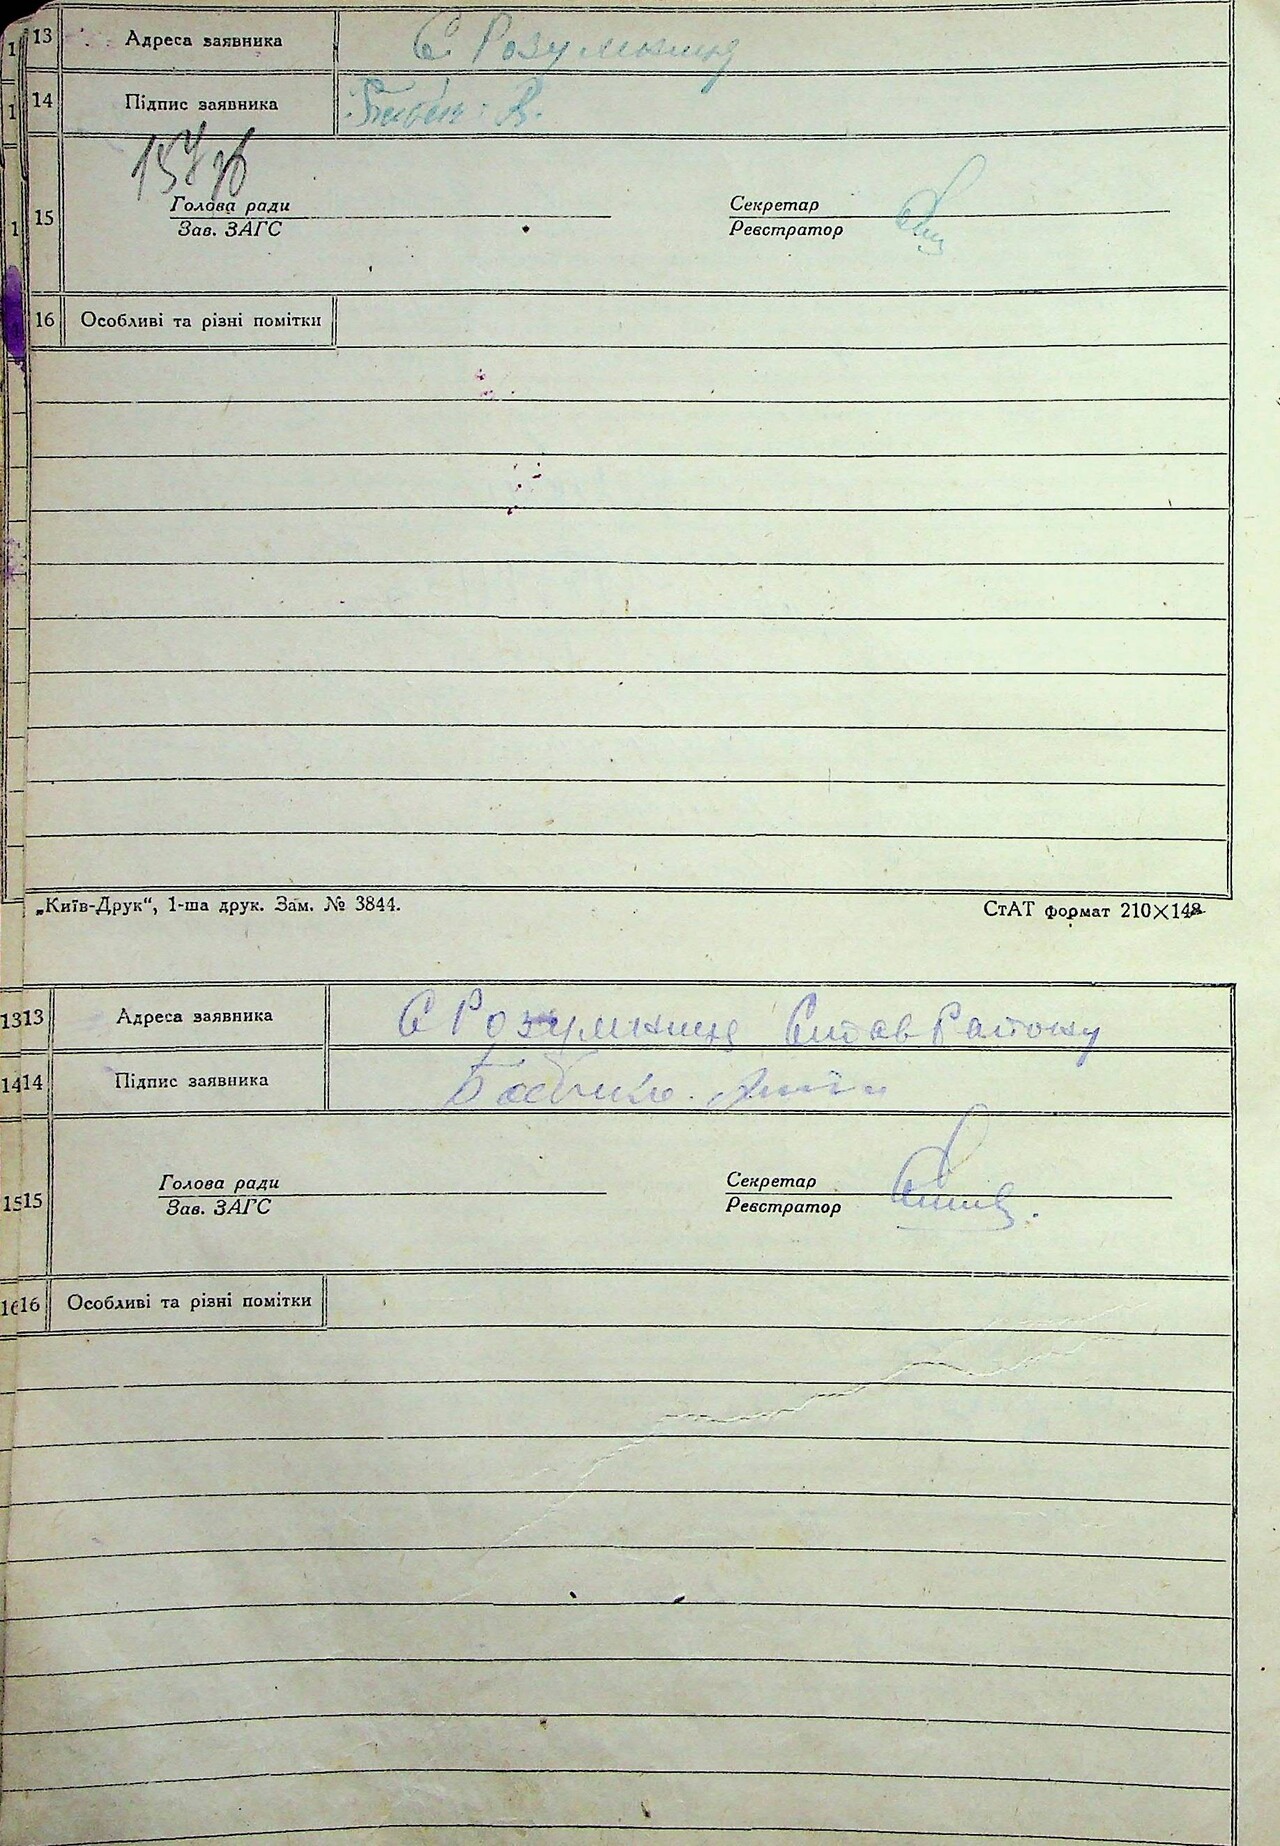 13 Адреса заявника С Розумниця
14 Підпис заявника
15
Голова ради Секретар
Зав. ЗАГС Реєстратор
16 Особливі та різні помітки
„Київ-Друк“, 1-ша друк. Зам. № 3844. СтАТ формат 210×148
13 Адреса заявника С Розумниця Став Району
14 Підпис заявника
15
Голова ради Секретар
Зав. ЗАГС Реєстратор
16 Особливі та різні помітки